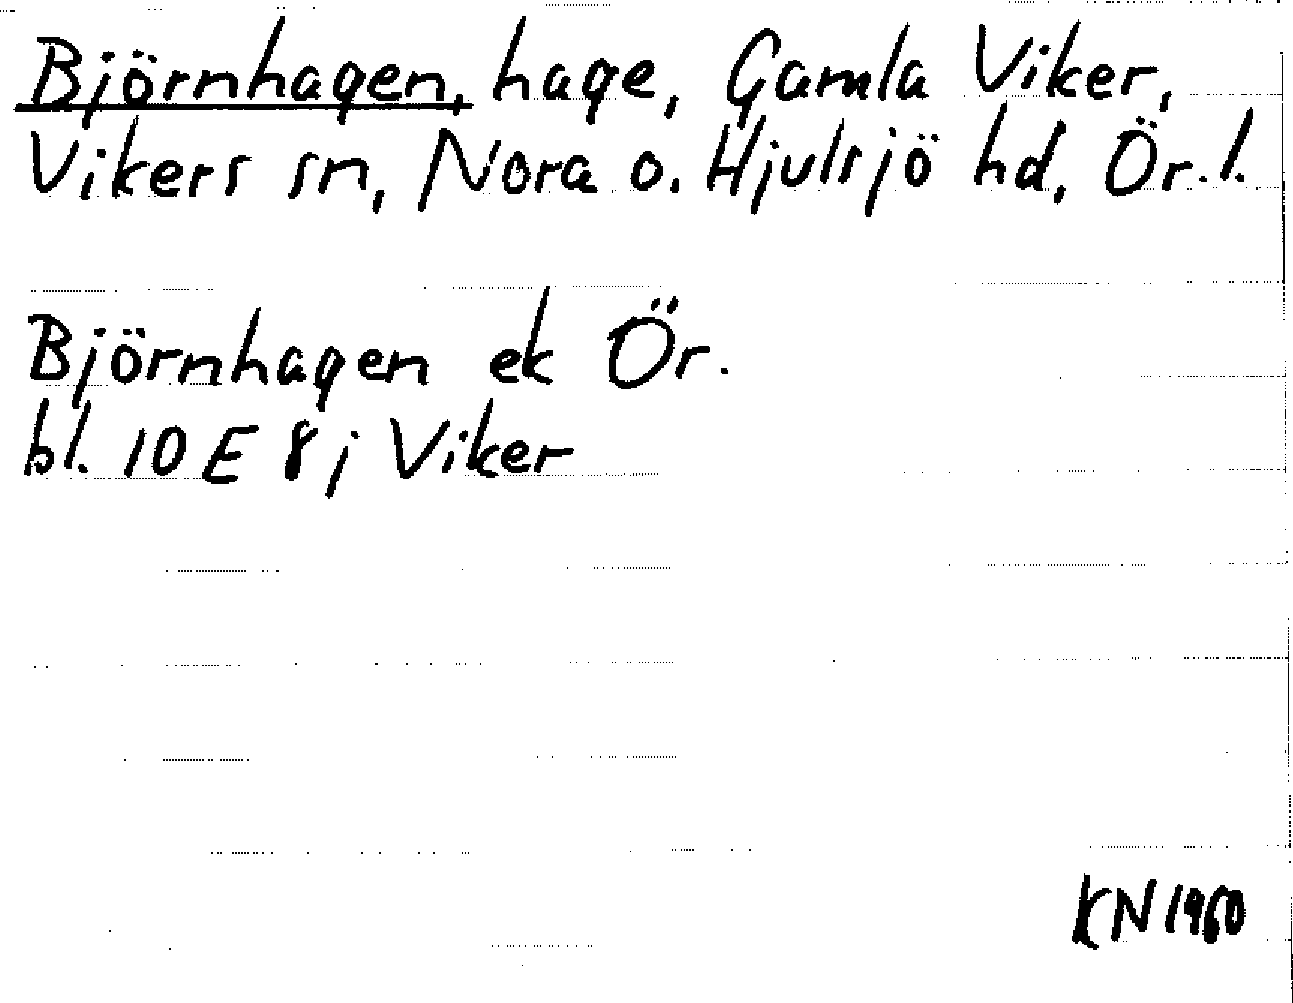 Björnhagen, hage, Gamla Viker,
Vikers sn, Nora o. Hjulsjö hd, Ör. l.
Björnhagen ek Ör.
bl. 10 E 8 j Viker
KN 1960